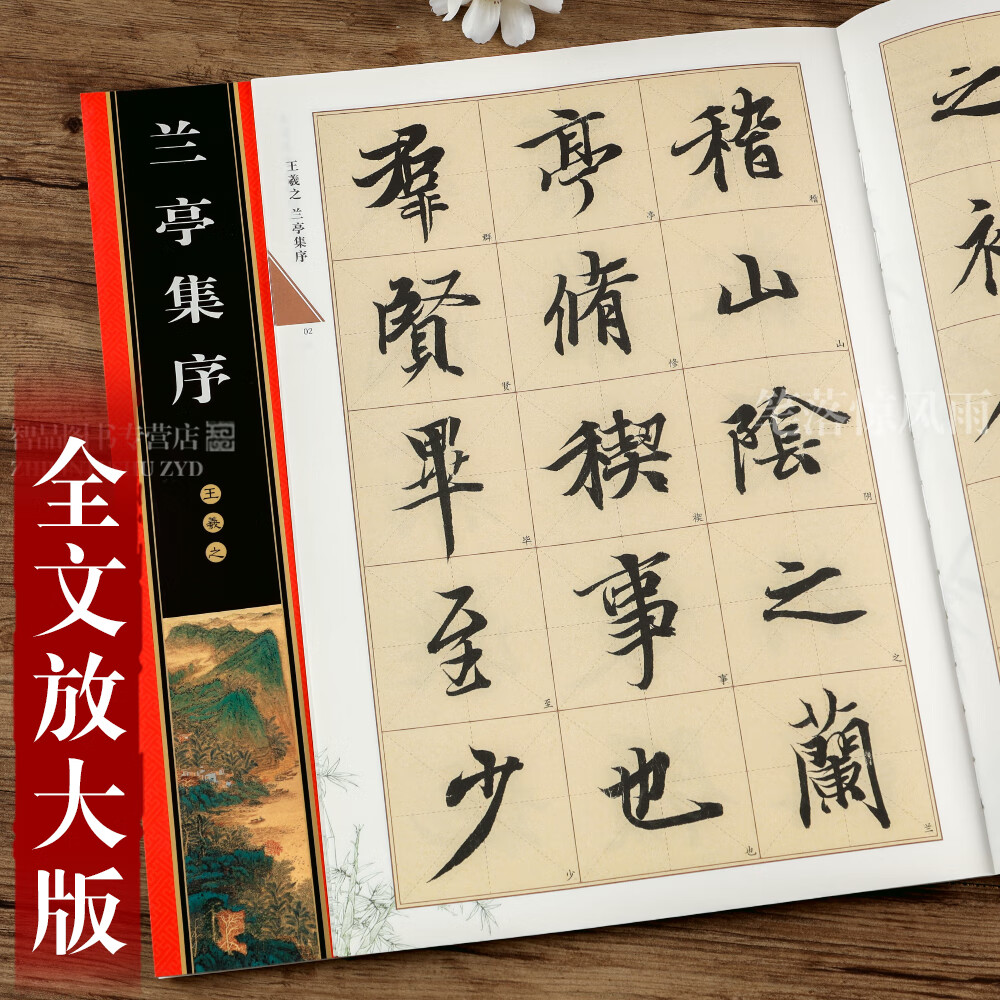 兰亭集序
王羲之
全文放大版
王羲之 兰亭集序
02
稽山陰之蘭
亭脩稧事也
羣賢畢至少
稽
山
阴
之
兰
亭
修
稧
事
也
群
贤
毕
至
少
之
智品图书专营店
笔落惊风雨